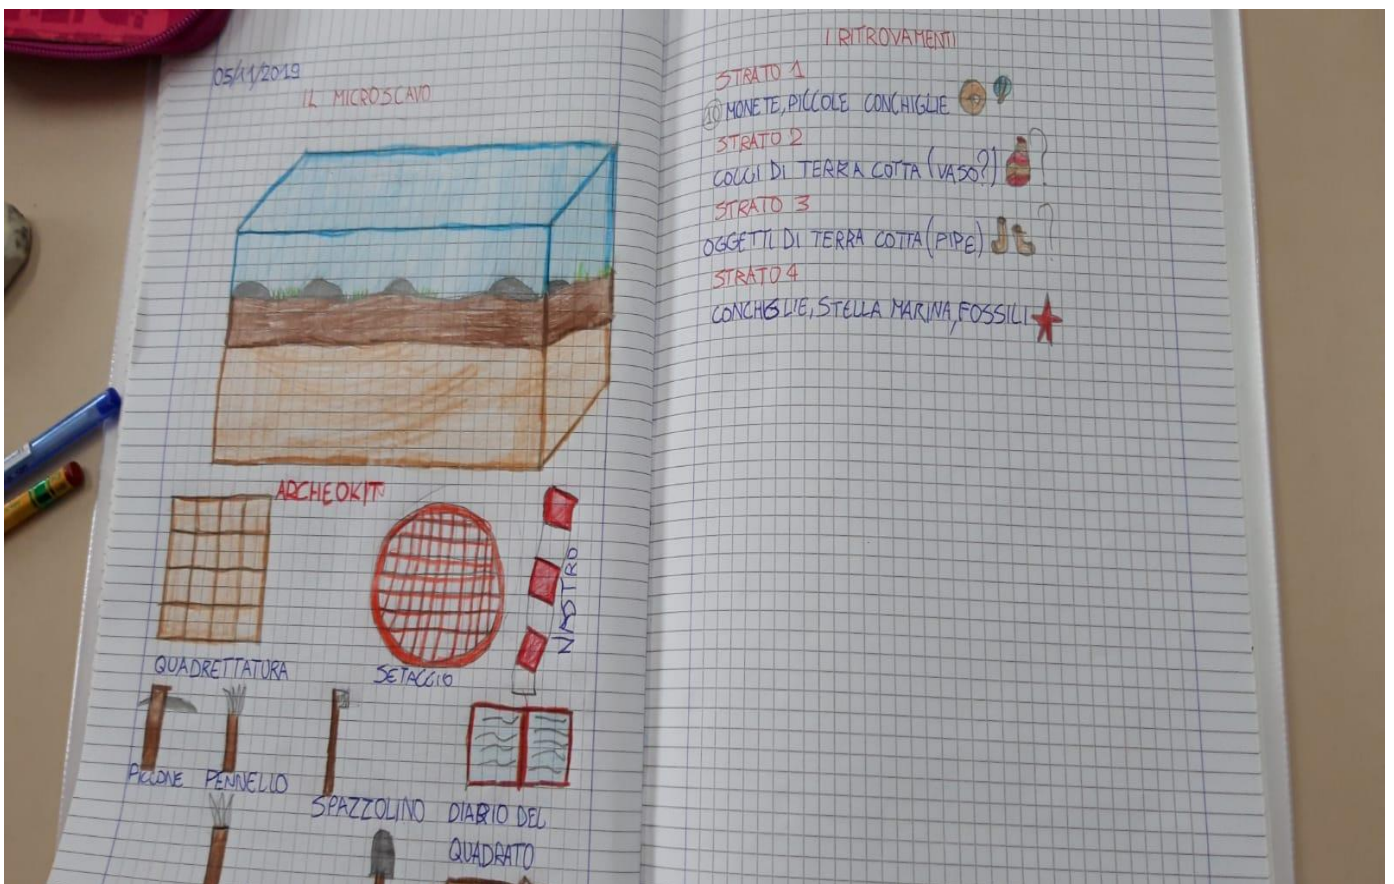 05/11/2019
IL MICROSCAVO
ARCHEOKIT
NASTRO
QUADRETTATURA
SETACCIO
PICCONE PENNELLO
SPAZZOLINO DIARIO DEL
QUADRATO
I RITROVAMENTI
STRATO 1
10 MONETE, PICCOLE CONCHIGLIE
STRATO 2
COLLI DI TERRA COTTA (VASO?) ?
STRATO 3
OGGETTI DI TERRA COTTA (PIPE) ?
STRATO 4
CONCHIGLIE, STELLA MARINA, FOSSILI